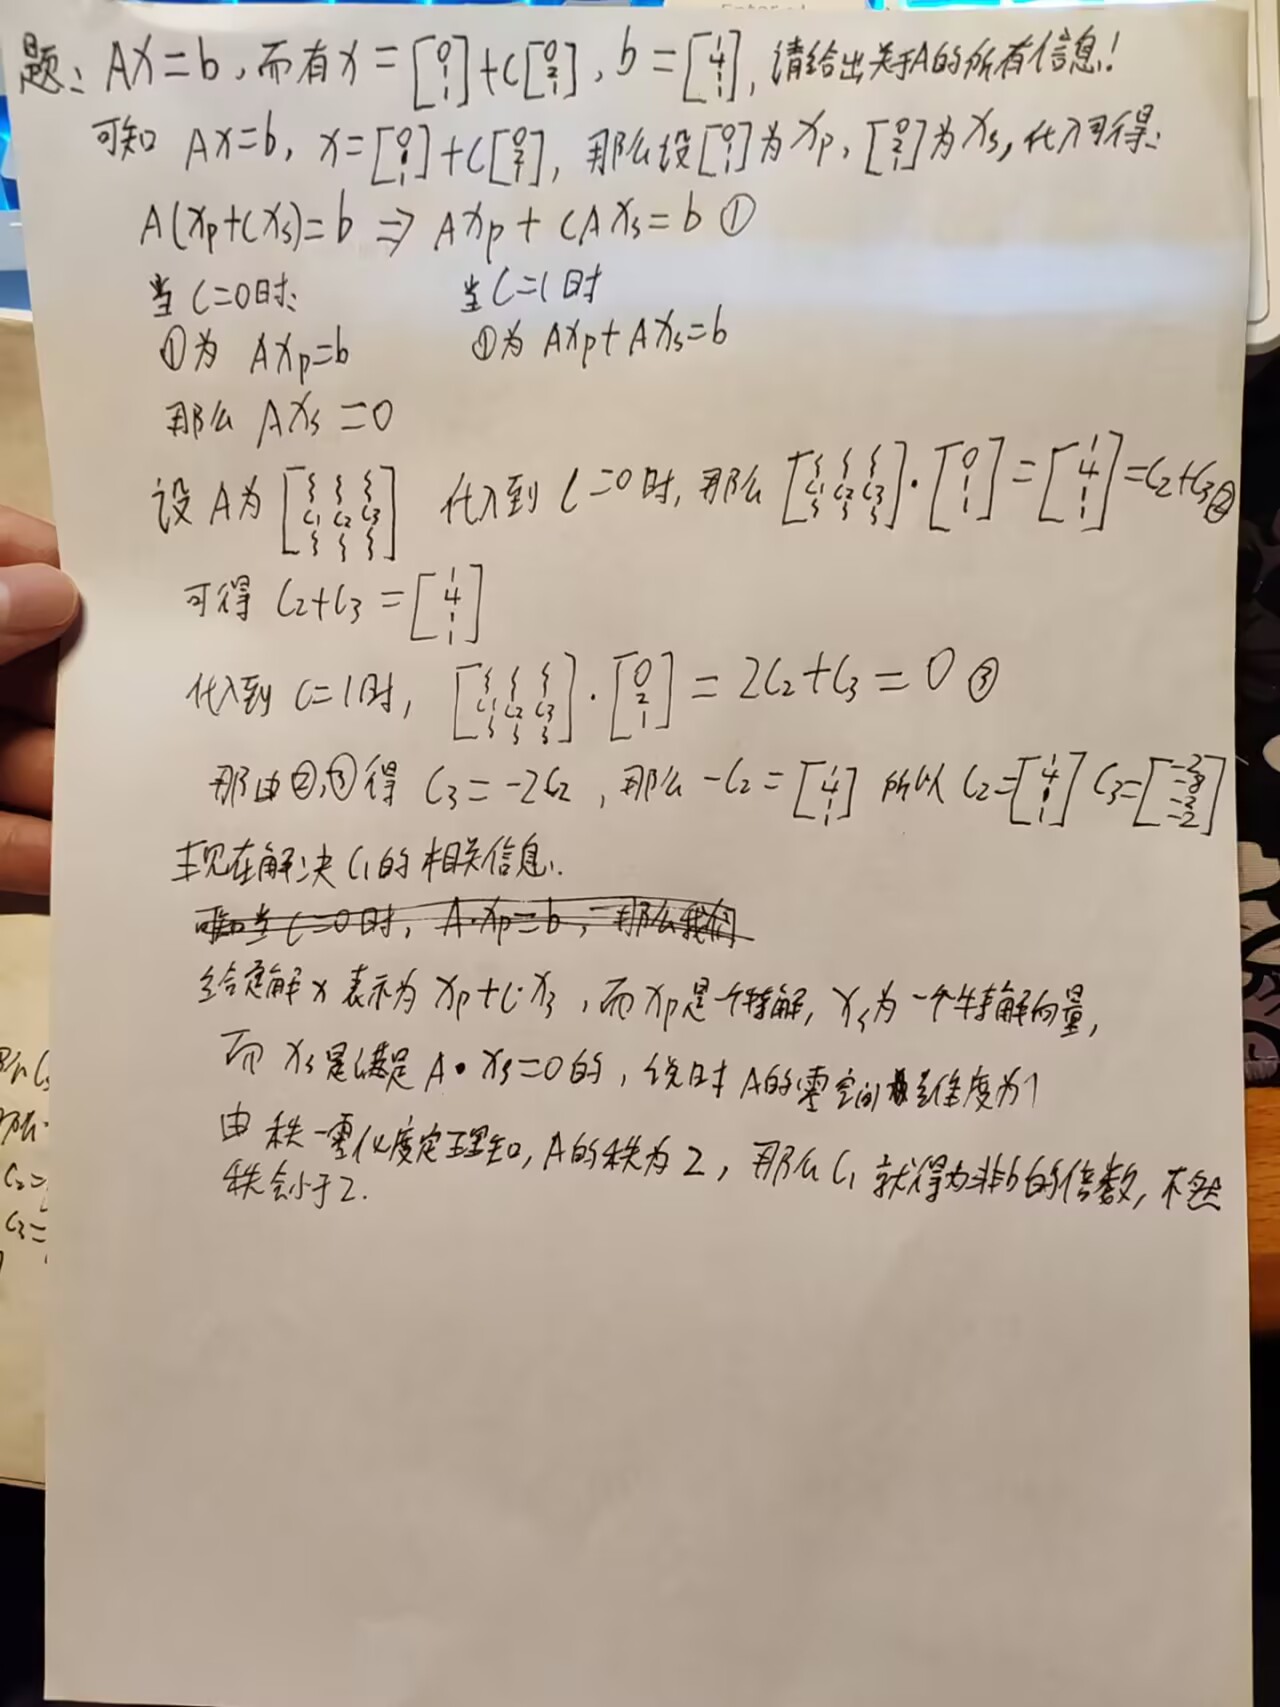 题: Ax=b,而有x=[0 1 1]+c[0 2 1], b=[1 4 1 1],请给出关于A的所有信息!
可知 Ax=b, x=[0 1 1]+c[0 2 1], 那么设[0 1 1]为xp,[0 2 1]为xs,代入可得:
A(xp+cxs)=b ⇒ Axp+cAxs=b ①
当c=0时: 当c=1时
①为 Axp=b ①为 Axp+Axs=b
那么 Axs=0
设A为[c1 c2 c3] 代入到c=0时,那么[c1 c2 c3]·[0 1 1]=[1 4 1 1]=c2+c3②
可得 c2+c3=[1 4 1 1]
代入到c=1时, [c1 c2 c3]·[0 2 1]=2c2+c3=0③
那由②,③得 c3=-2c2,那么-c2=[1 4 1 1] 所以 c2=[1 4 1 1] c3=[-2 -8 -2 -2]
现在解决c1的相关信息.
可知当c=0时, A·xp=b,那么我们
给定解x表示为xp+c·xs,而xp是一个特解,xs为一个特解向量,
而xs是满足A·xs=0的,说明A的零空间维度为1
由秩-零化度定理知,A的秩为2,那么c1就得为非b的倍数,不然
秩会小于2.
c2=
c3=